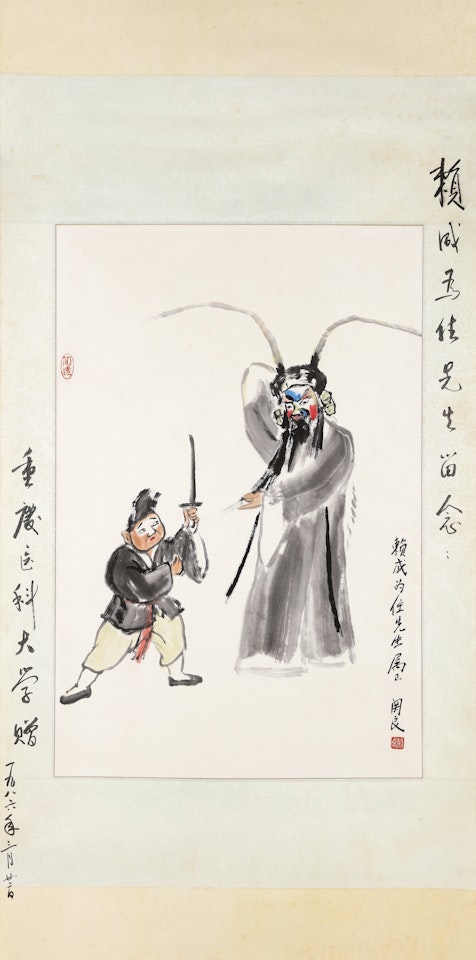 賴成为佳先生留念：
赖成为佳先生属正
関良
重慶医科大学赠
一九八六年三月廿二日